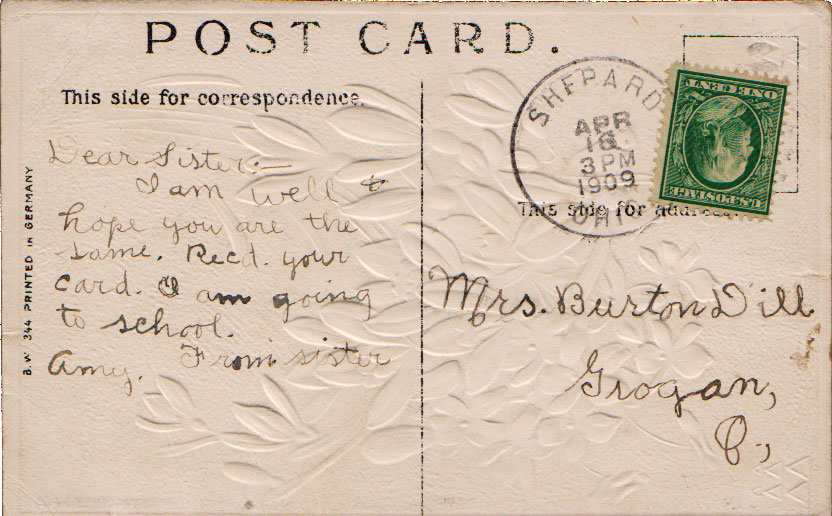 POST CARD.
This side for correspondence.
SHEPARD
APR
16
3 PM
1909
OHIO
ONE CENT
U.S. POSTAGE
This side for address.
B.W. 344 PRINTED IN GERMANY
Dear Sister:—
I am well &
hope you are the
same. Recd. your
card. I am going
to school.
From sister
Amy.
Mrs. Burton Dill
Grogan,
O.,